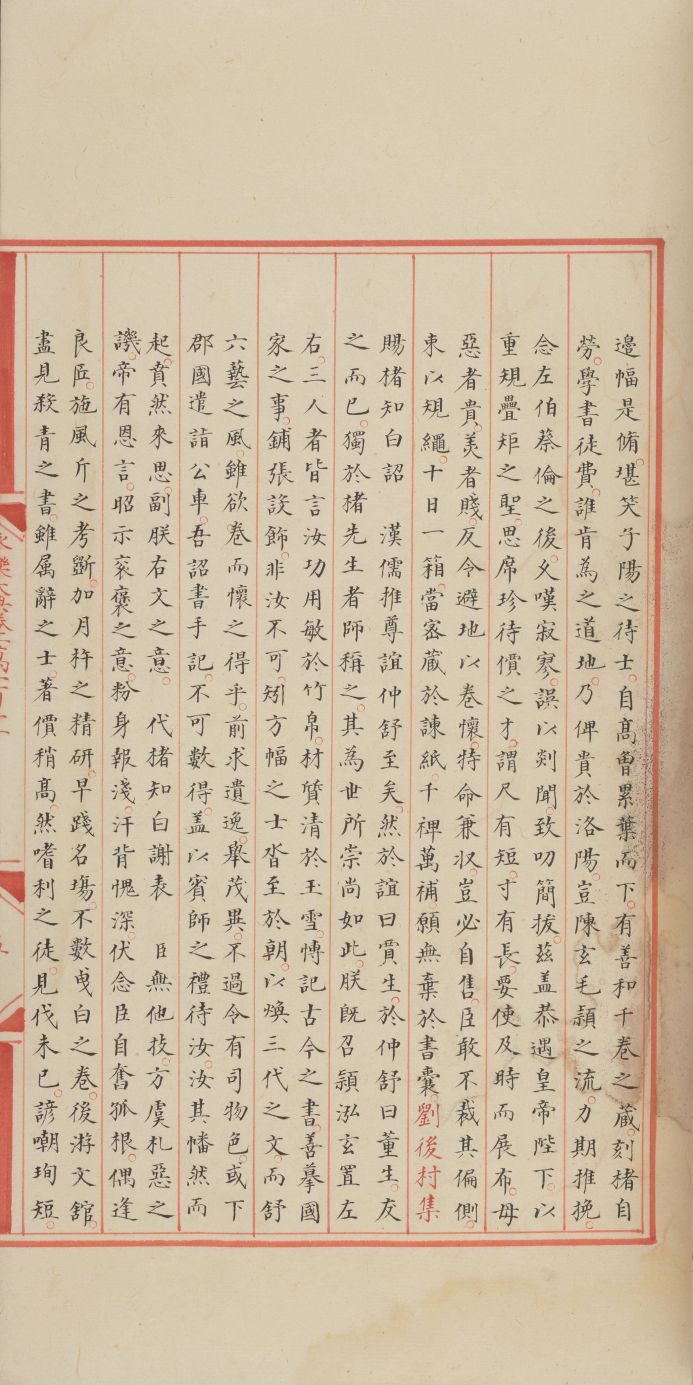 邊幅是脩堪笑子陽之待士自高曾累葉而下有善和千卷之藏刻楮自
勞學書徒費誰肯為之道地乃俾貴於洛陽豈陳玄毛穎之流力期推挽
念左伯蔡倫之後久嘆寂寥誤以剡聞致叨簡拔茲盖恭遇皇帝陛下以
重規疊矩之聖思席珍待價之才謂尺有短寸有長要使及時而展布毋
惡者貴羙者賤反令避地以卷懷特命兼収豈必自售臣敢不裁其偏側
束以規繩十日一箱當宻藏於諫紙千裨萬補願無棄於書囊劉後村集
賜楮知白詔 漢儒推尊誼仲舒至矣然於誼曰賈生於仲舒曰董生友
之而已獨於楮先生者師稱之其為世所崇尚如此朕既召穎泓玄置左
右三人者皆言汝功用敏於竹帛材質清於玉雪愽記古今之書善摹國
家之事鋪張設飾非汝不可矧方幅之士沓至於朝以煥三代之文而舒
六藝之風雖欲卷而懷之得乎前求遺逸舉茂異不過令有司物色或下
郡國遣詣公車吾詔書手記不可數得盖以賓師之禮待汝汝其幡然而
起賁然來思副朕右文之意 代楮知白謝表 臣無他技方虞札惡之
譏帝有恩言昭示衮襃之意粉身報淺汗背愧深伏念臣自奮孤根偶逢
良匠施風斤之考斵加月杵之精研早踐名塲不數曵白之卷後游文舘
盡見殺青之書雖属辭之士著價稍高然嗜利之徒見伐未已諺嘲珣短